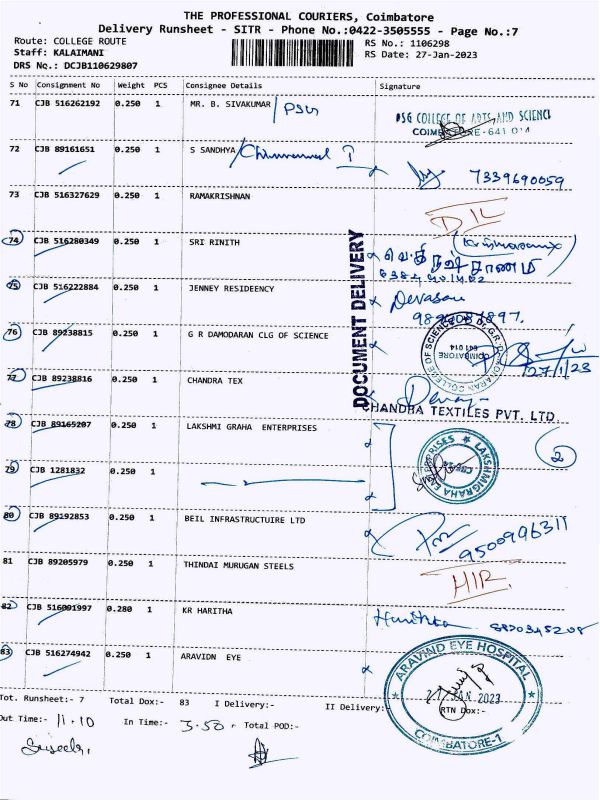 THE PROFESSIONAL COURIERS, Coimbatore
Delivery Runsheet - SITR - Phone No.:0422-3505555 - Page No.:7
Route: COLLEGE ROUTE RS No.: 1106298
Staff: KALAIMANI RS Date: 27-Jan-2023
DRS No.: DCJB110629807
S No Consignment No Weight PCS Consignee Details Signature
71 CJB 516262192 0.250 1 MR. B. SIVAKUMAR / PSG
PSG COLLEGE OF ARTS AND SCIENCE
COIMBATORE - 641 014
72 CJB 89161651 0.250 1 S SANDHYA 7339690059
73 CJB 516327629 0.250 1 RAMAKRISHNAN D/L
74 CJB 516280349 0.250 1 SRI RINITH
75 CJB 516222884 0.250 1 JENNEY RESIDEENCY
DOCUMENT DELIVERY
76 CJB 89238815 0.250 1 G R DAMODARAN CLG OF SCIENCE
COIMBATORE 641 014
27/1/23
77 CJB 89238816 0.250 1 CHANDRA TEX
CHANDHA TEXTILES PVT. LTD.
78 CJB 89165207 0.250 1 LAKSHMI GRAHA ENTERPRISES
LAKSHMIGRAHA ENTERPRISES
2
79 CJB 1281832 0.250 1
80 CJB 89192853 0.250 1 BEIL INFRASTRUCTUIRE LTD
9500996311
81 CJB 89205979 0.250 1 THINDAI MURUGAN STEELS
82 CJB 516001997 0.280 1 KR HARITHA Haritha
83 CJB 516274942 0.250 1 ARAVIDN EYE
ARAVIND EYE HOSPITAL
27 JAN 2023
COIMBATORE-1
Tot. Runsheet:- 7 Total Dox:- 83 I Delivery:- II Delivery:- RTN Dox:-
Out Time:- 11.10 In Time:- 3.50 Total POD:-